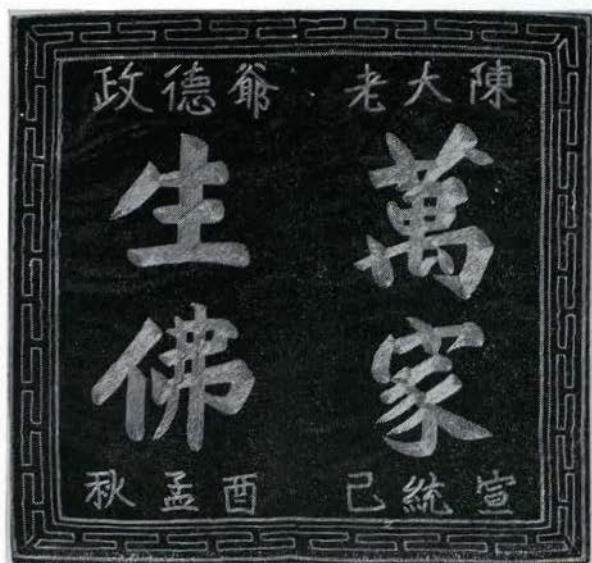 陳大老爺德政
萬家生佛
宣統己酉孟秋